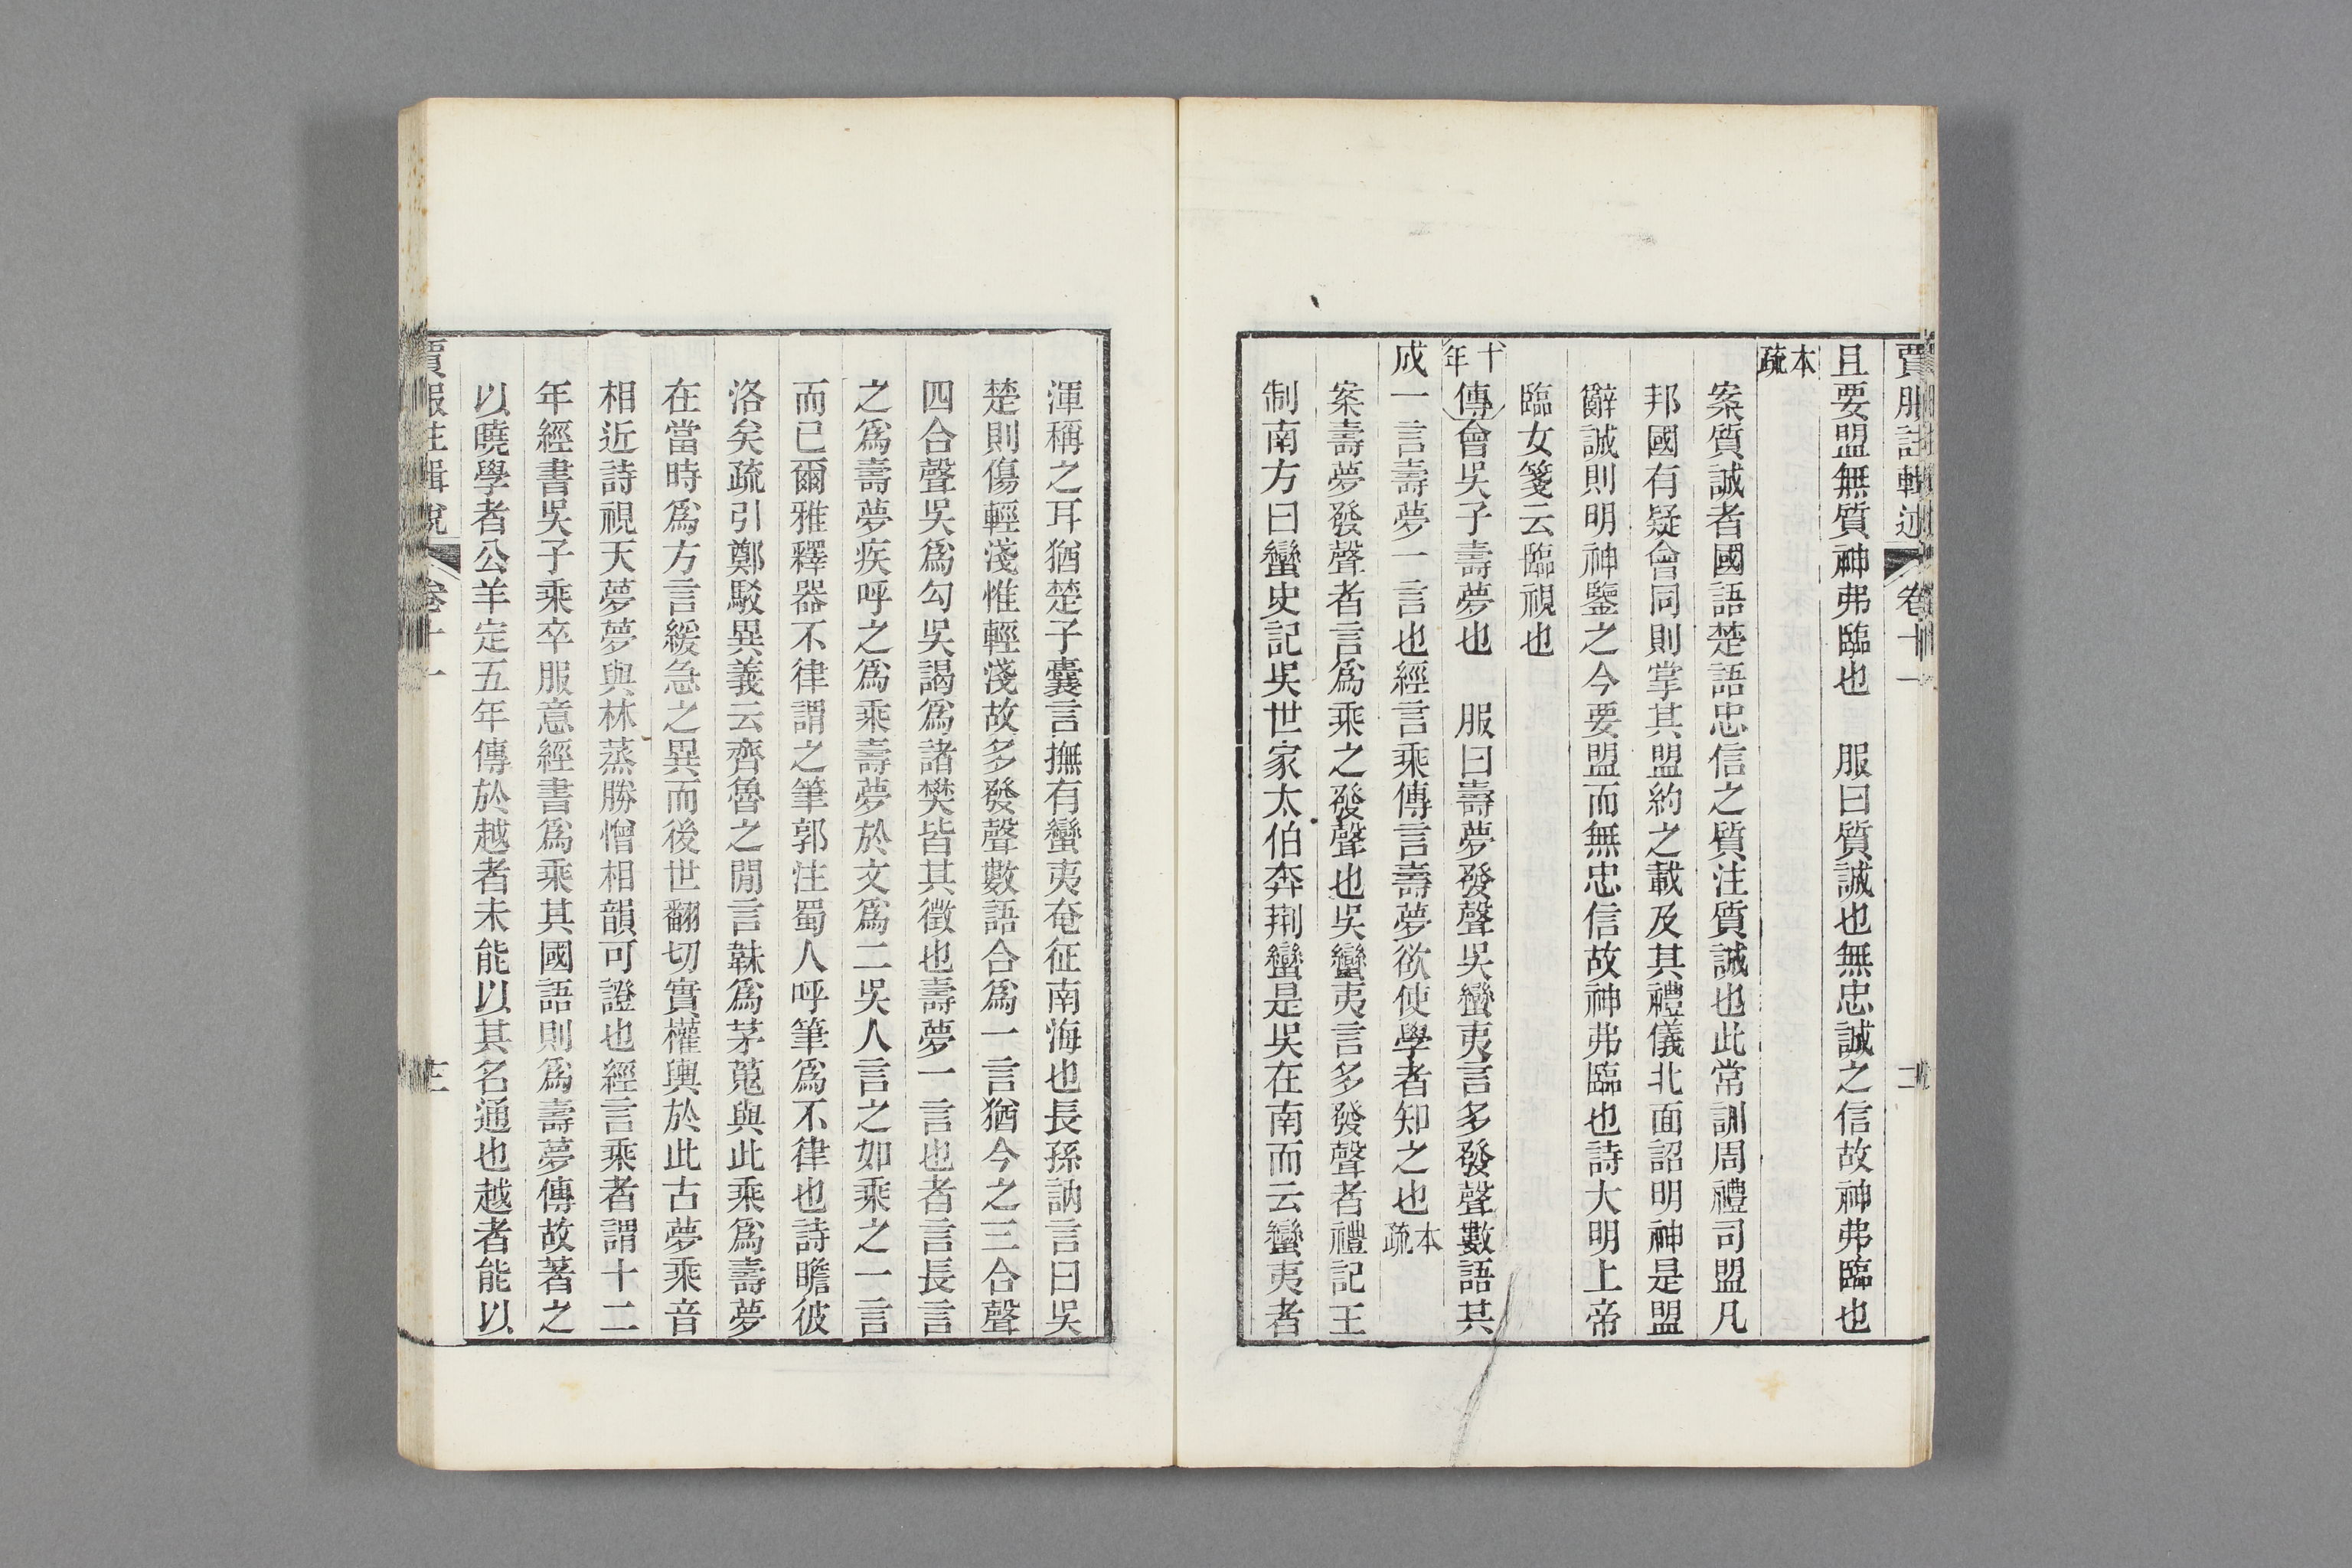 賈服註輯述 卷十一 二
且要盟無質神弗臨也　服曰質誠也無忠誠之信故神弗臨也
本疏
案質誠者國語楚語忠信之質注質誠也此常訓周禮司盟凡
邦國有疑會同則掌其盟約之載及其禮儀北面詔明神是盟
辭誠則明神鑒之今要盟而無忠信故神弗臨也詩大明上帝
臨女箋云臨視也
十年傳會吳子壽夢也　服曰壽夢發聲吳蠻夷言多發聲數語其
成一言壽夢一言也經言乘傳言壽夢欲使學者知之也本疏
案壽夢發聲者言爲乘之發聲也吳蠻夷言多發聲者禮記王
制南方曰蠻史記吳世家太伯奔荆蠻是吳在南而云蠻夷者
渾稱之耳猶楚子囊言撫有蠻夷奄征南海也長孫訥言曰吳
楚則傷輕淺惟輕淺故多發聲數語合爲一言猶今之三合聲
四合聲吳爲勾吳謁爲諸樊皆其徵也壽夢一言也者言長言
之爲壽夢疾呼之爲乘壽夢於文爲二吳人言之如乘之一言
而已爾雅釋器不律謂之筆郭注蜀人呼筆爲不律也詩瞻彼
洛矣疏引鄭駁異義云齊魯之閒言韎爲茅蒐與此乘爲壽夢
在當時爲方言緩急之異而後世翻切實權輿於此古夢乘音
相近詩視天夢夢與林蒸勝憎相韻可證也經言乘者謂十二
年經書吳子乘卒服意經書爲乘其國語則爲壽夢傳故著之
以曉學者公羊定五年傳於越者未能以其名通也越者能以
卷十一 三